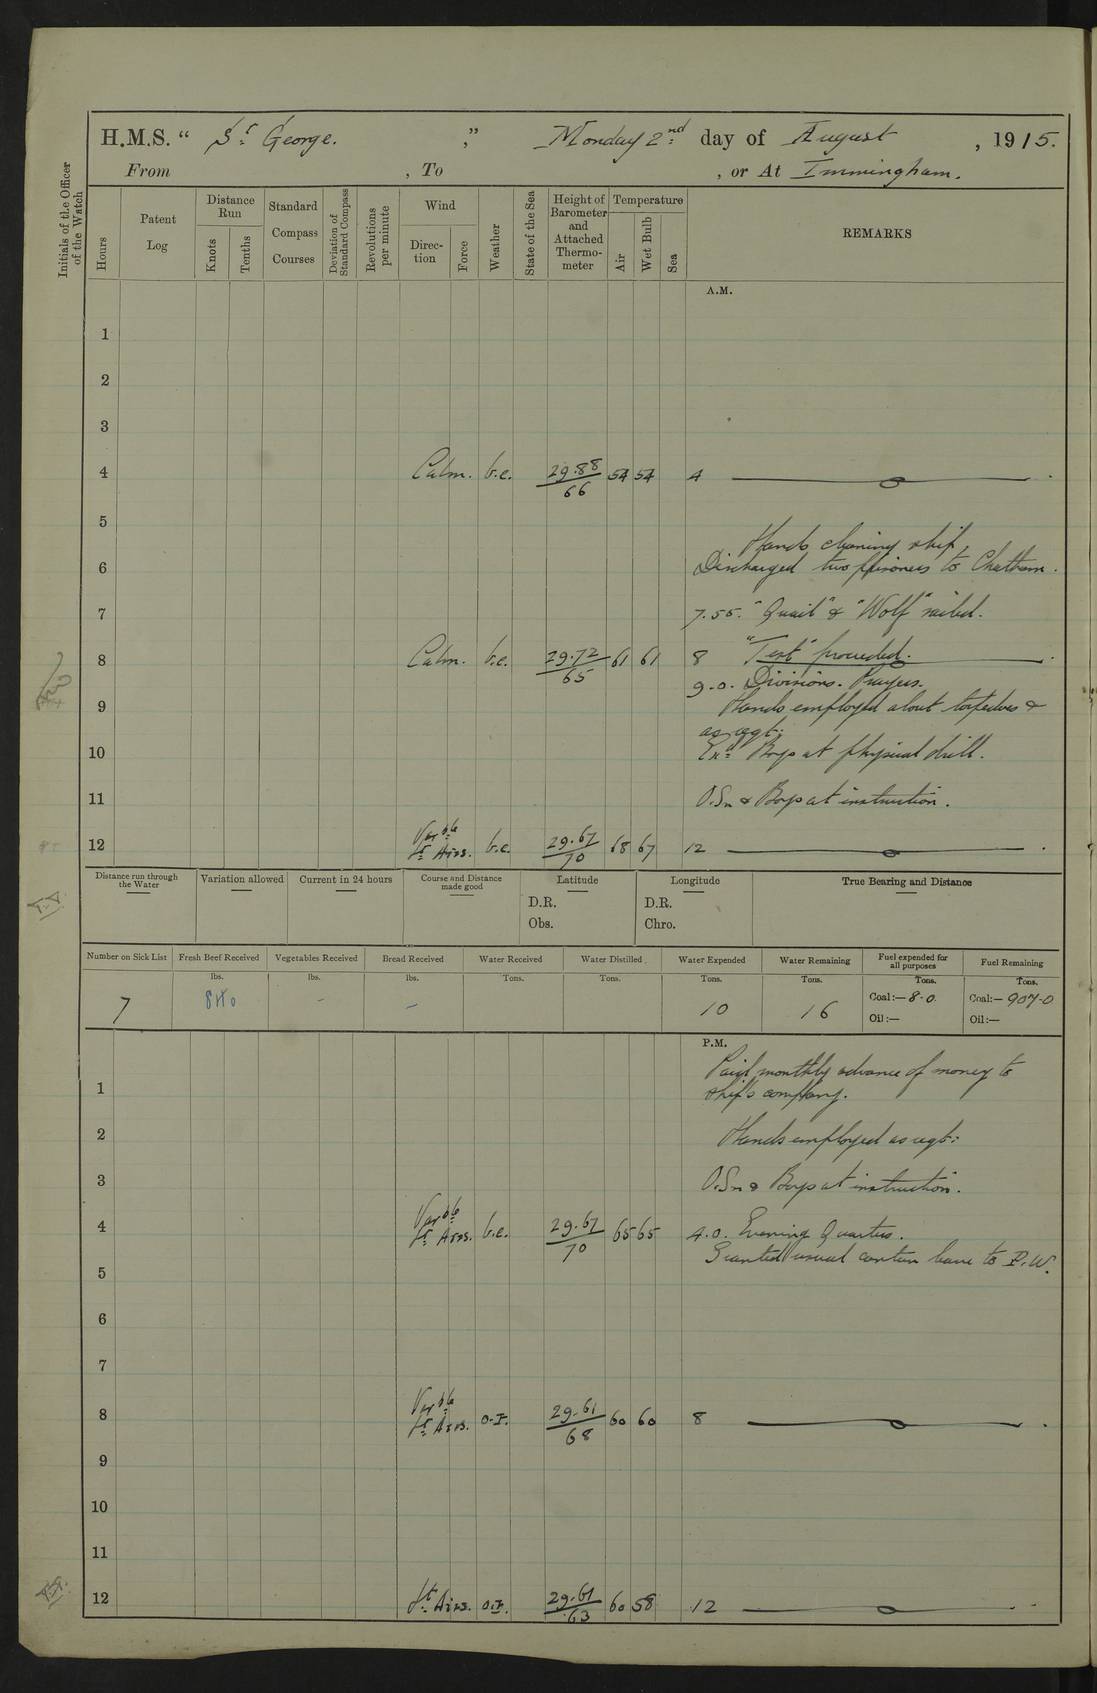 H.M.S. “ St George. ,” Monday 2nd day of August , 1915.
From , To , or At Immingham.
Initials of the Officer of the Watch
Hours
Patent Log
Distance Run
Knots
Tenths
Standard Compass Courses
Deviation of Standard Compass
Revolutions per minute
Wind
Direction
Force
Weather
State of the Sea
Height of Barometer and Attached Thermometer
Temperature
Air
Wet Bulb
Sea
REMARKS
A.M.
1
2
3
4 Calm. b.c. 29.88/66 54 54 4
5
Hands cleaning ship,
6 Discharged two prisoners to Chatham.
7 7.55. "Quail" & "Wolf" sailed.
8 Calm. b.c. 29.72/65 61 61 8 "Test" proceeded.
9.0. Divisions. Prayers.
9 Hands employed about torpedoes &
as reqt:
10 Exd Boys at physical drill.
11 O.Sn & Boys at instruction.
12 Varble Lt Airs. b.c. 29.67/70 68 67 12
Distance run through the Water
Variation allowed
Current in 24 hours
Course and Distance made good
Latitude
D.R.
Obs.
Longitude
D.R.
Chro.
True Bearing and Distance
Number on Sick List
7
Fresh Beef Received
lbs.
840
Vegetables Received
lbs.
-
Bread Received
lbs.
-
Water Received
Tons.
Water Distilled
Tons.
Water Expended
Tons.
10
Water Remaining
Tons.
16
Fuel expended for all purposes
Tons.
Coal:— 8-0
Oil:—
Fuel Remaining
Tons.
Coal:— 907-0
Oil:—
P.M.
Paid monthly advance of money to
1 ship's company.
2 Hands employed as reqt:
3 O.Sn & Boys at instruction.
4 Varble Lt Airs. b.c. 29.67/70 65 65 4.0. Evening Quarters.
Granted usual canteen leave to P.W.
5
6
7
8 Varble Lt Airs. o.r. 29.61/68 60 60 8
9
10
11
12 Lt Airs. o.r. 29.61/63 60 58 12